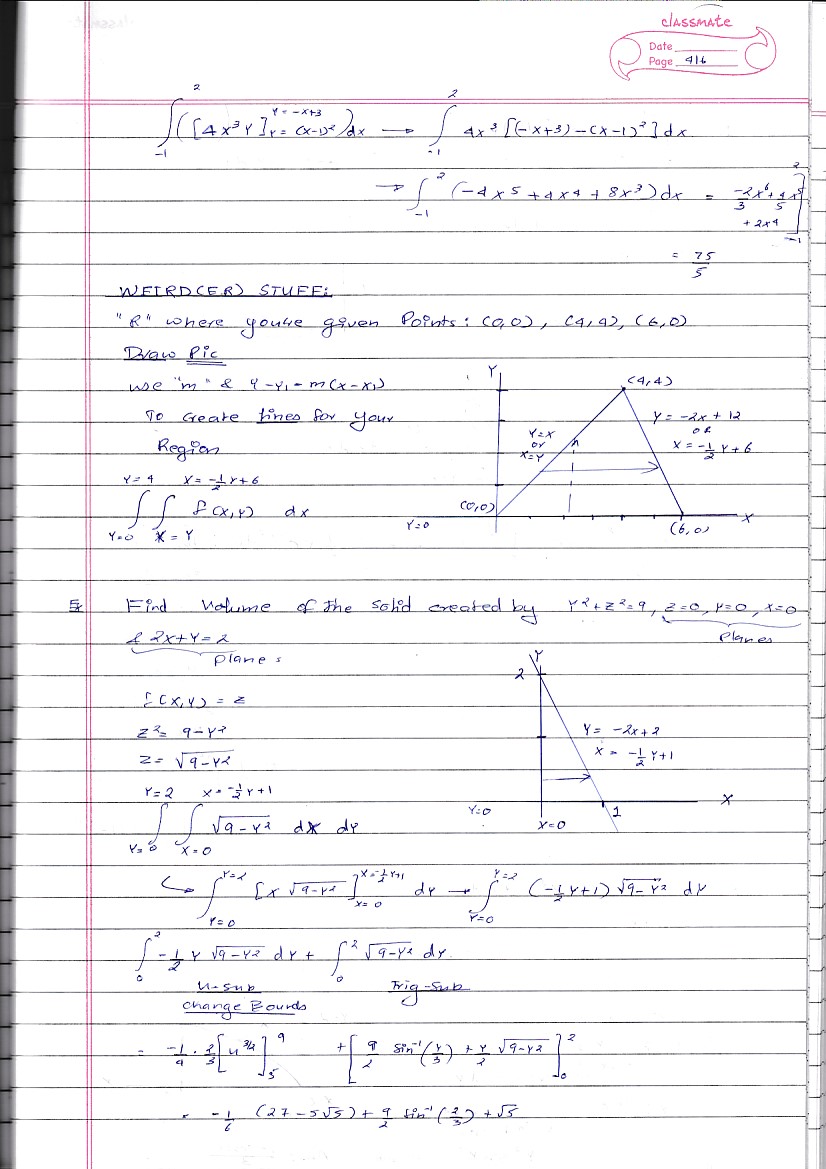 classmate
Date
Page 416
∫_{-1}^{2} ([4x³Y]_{Y=(x-1)²}^{Y=-x+3})dx → ∫_{-1}^{2} 4x³[(-x+3)-(x-1)²]dx
→ ∫_{-1}^{2} (-4x⁵+4x⁴+8x³)dx = -2/3 x⁶ + 4/5 x⁵ + 2x⁴]_{-1}^{2}
= 75/5
WEIRD(ER) STUFF:
"R" where you're given Points: (0,0), (4,4), (6,0)
Draw Pic
use "m" & Y-Y₁=m(x-x₁)
To create lines for your
Region
∫_{Y=0}^{Y=4} ∫_{X=Y}^{X=-½Y+6} f(x,Y) dx
Y
(4,4)
Y=x
or
x=Y
Y=-2x+12
OR
x=-½Y+6
(0,0)
Y=0
(6,0)
X
Ex Find Volume of the solid created by Y²+Z²=9, Z=0, Y=0, X=0
Planes
& 2X+Y=2
Plane :
f(x,Y) = Z
Z²= 9-Y²
Z= √9-Y²
∫_{Y=0}^{Y=2} ∫_{X=0}^{X=-½Y+1} √9-Y² dx dY
Y
2
Y= -2x+2
X= -½Y+1
Y=0
X=0
1
X
↪ ∫_{Y=0}^{Y=2} [x √9-Y²]_{X=0}^{X=-½Y+1} dY → ∫_{Y=0}^{Y=2} (-½Y+1) √9-Y² dY
∫_0^2 -½ Y √9-Y² dY + ∫_0^2 √9-Y² dY.
U-sub
Trig-sub
Change Bounds
= -1/4 · 2/3 [u^{3/2}]_5^9 + [9/2 sin⁻¹(Y/3) + Y/2 √9-Y²]_0^2
= -1/6 (27-5√5)+ 9/2 sin⁻¹(2/3)+√5